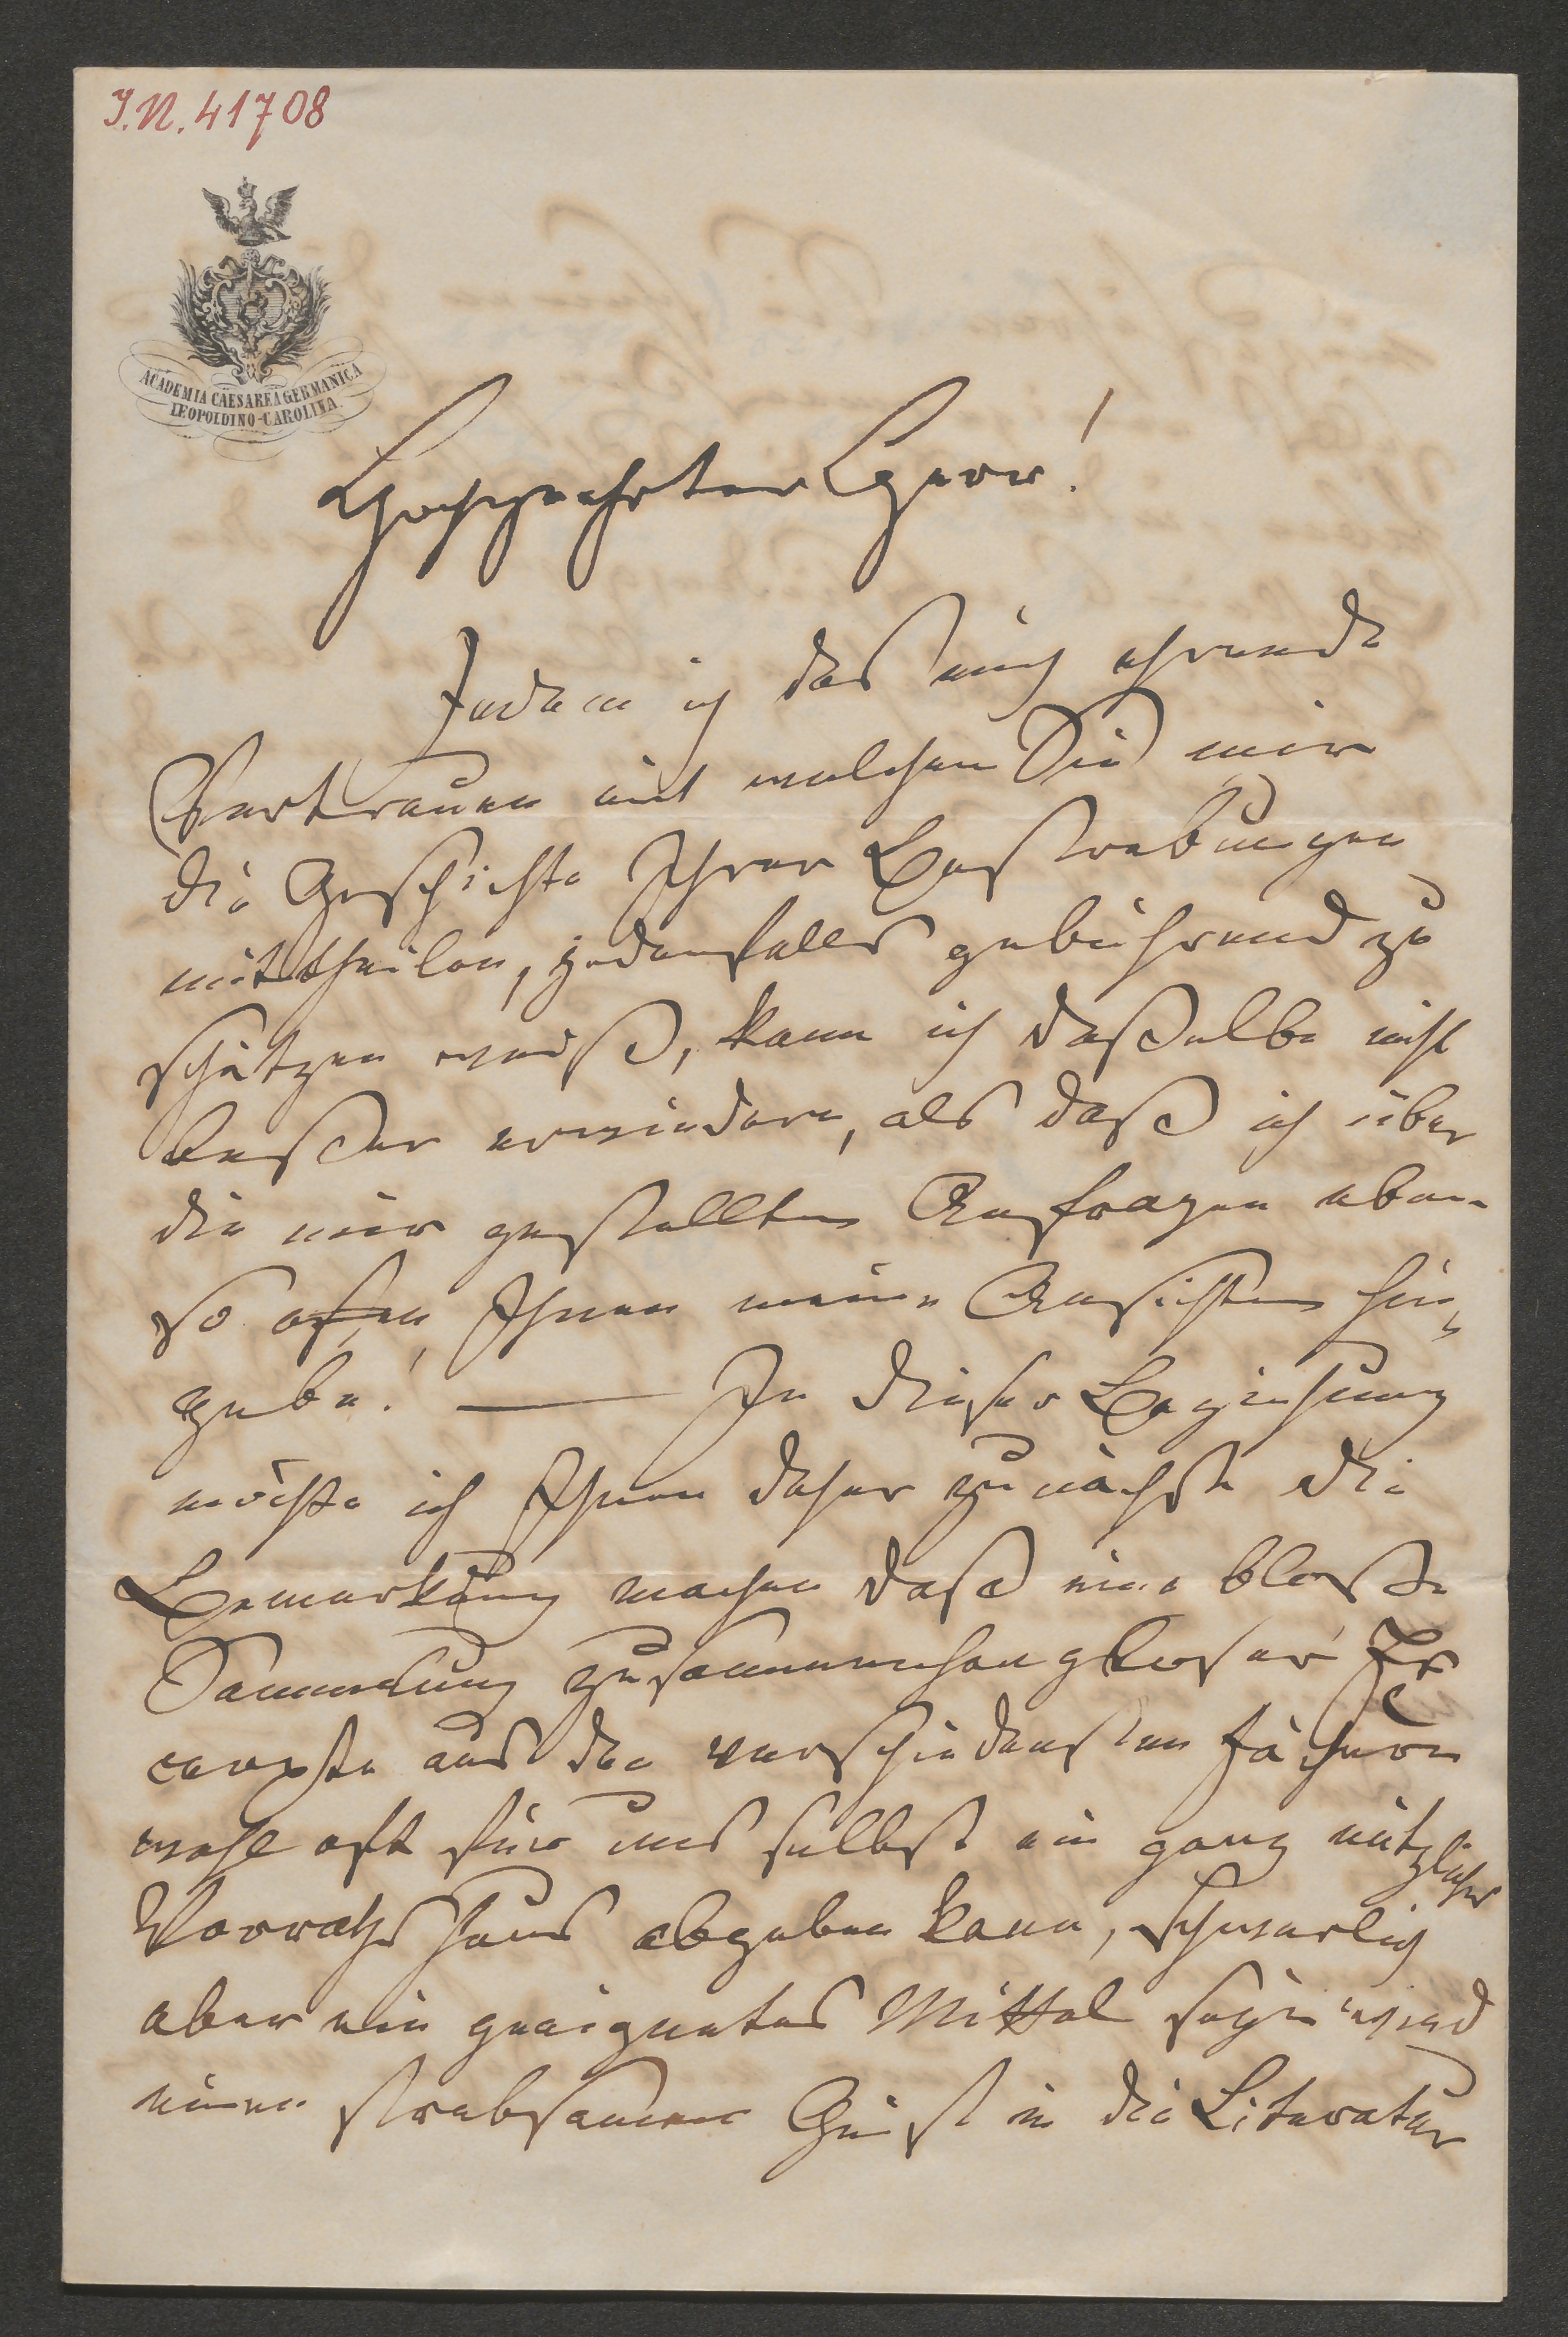 I.N. 41708
ACADEMIA CAESAREA GERMANICA
LEOPOLDINO-CAROLINA.
Hochgeehrter Herr!
Indem ich das mich ehrende
Vertrauen mit welchem Sie mir
die Geschichte Ihrer Bestrebungen
mittheilen, jedenfalls gebührend zu
schätzen weiß, kann ich dasselbe nicht
besser erwiedern, als daß ich über
die mir gestellten Anfragen eben-
so offen, Ihnen meine Ansichten hin-
gebe! — In dieser Beziehung
möchte ich Ihnen daher zunächst die
Bemerkung machen daß eine bloße
Sammlung zusammenhangloser Ex
cerpte aus den verschiedensten Fächern
wohl oft für uns selbst ein ganz nützliches
Vorrathshaus abgeben kann, schwerlich
aber ein geeignetes Mittel seyn wird
einen strebsamen Geist in die Literatur